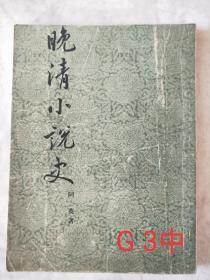 晚清小說史
阿英著
G 3中